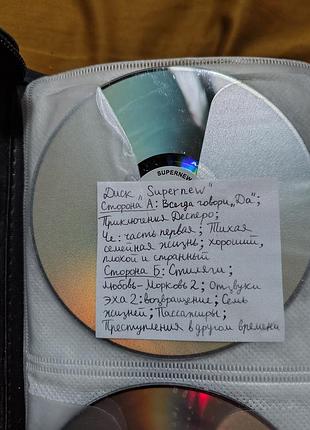 SUPERNEW
Диск „Supernew"
Сторона А: Всегда говори „Да";
Приключения Десперо;
Че: часть первая; Тихая
семейная жизнь; хороший,
плохой и странный
Сторона Б: Стиляги;
Любовь-Морковь 2; Отзвуки
эха 2: возвращение; Семь
жизней; Пассажиры;
Преступления в другом времени